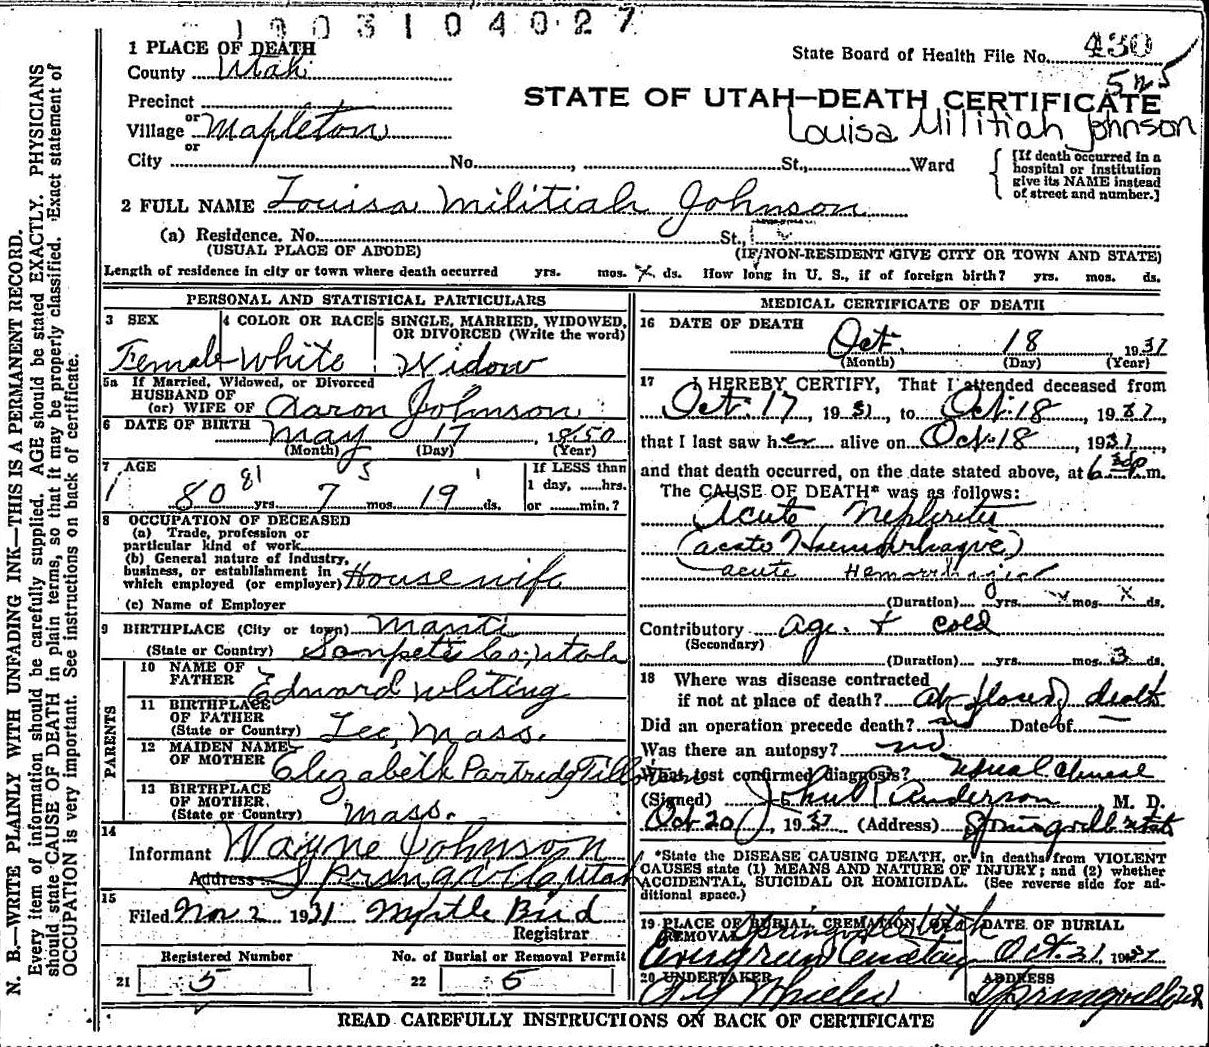 1003104027
1 PLACE OF DEATH
County Utah
State Board of Health File No. 430
525
Precinct
or
Village Mapleton
or
STATE OF UTAH—DEATH CERTIFICATE
Louisa Militiah Johnson
City No. , St., Ward
[If death occurred in a
hospital or institution
give its NAME instead
of street and number.]
2 FULL NAME Louisa Militiah Johnson
(a) Residence. No. St.,
(USUAL PLACE OF ABODE)
(IF NON-RESIDENT GIVE CITY OR TOWN AND STATE)
Length of residence in city or town where death occurred yrs. mos. ds. How long in U. S., if of foreign birth? yrs. mos. ds.
PERSONAL AND STATISTICAL PARTICULARS
3 SEX
Female
4 COLOR OR RACE
White
5 SINGLE, MARRIED, WIDOWED,
OR DIVORCED (Write the word)
Widow
5a If Married, Widowed, or Divorced
HUSBAND OF
(or) WIFE OF Aaron Johnson
6 DATE OF BIRTH May 17, 1850
(Month) (Day) (Year)
7 AGE 81 5 1
80 yrs. 7 mos. 19 ds.
If LESS than
1 day, hrs.
or min.?
8 OCCUPATION OF DECEASED
(a) Trade, profession or
particular kind of work
(b) General nature of Industry,
business, or establishment in
which employed (or employer) Housewife
(c) Name of Employer
9 BIRTHPLACE (City or town) Manti
(State or Country) Sanpete Co., Utah
PARENTS
10 NAME OF
FATHER Edward Whiting
11 BIRTHPLACE
OF FATHER
(State or Country) Lee, Mass.
12 MAIDEN NAME
OF MOTHER Elizabeth Partridg
13 BIRTHPLACE
OF MOTHER,
(State or Country) Mass.
14
Informant Wayne Johnson
Address Springville, Utah
15
Filed Nov 2 1931 Myrtle Bird
Registrar
Registered Number
21 5
No. of Burial or Removal Permit
22 5
MEDICAL CERTIFICATE OF DEATH
16 DATE OF DEATH
Oct. 18 1931
(Month) (Day) (Year)
17 I HEREBY CERTIFY, That I attended deceased from
Oct. 17, 1931, to Oct. 18, 1931,
that I last saw her alive on Oct. 18, 1931,
and that death occurred, on the date stated above, at 6 30p m.
The CAUSE OF DEATH* was as follows:
Acute Nephritis
(acute Haemorrhagic)
acute Hemorrhagic
(Duration) yrs. mos. ds.
Contributory age & cold
(Secondary)
(Duration) yrs. mos. 3 ds.
18 Where was disease contracted
if not at place of death? At place of death
Did an operation precede death? no Date of —
Was there an autopsy? no
What test confirmed diagnosis? Usual clinical
(Signed) John R Anderson, M. D.
Oct 20, 1931 (Address) Springville Utah
*State the DISEASE CAUSING DEATH, or, in deaths from VIOLENT
CAUSES state (1) MEANS AND NATURE OF INJURY; and (2) whether
ACCIDENTAL, SUICIDAL OR HOMICIDAL. (See reverse side for ad-
ditional space.)
19 PLACE OF BURIAL, CREMATION, OR
REMOVAL Springville Utah
Evergreen Cemetery
DATE OF BURIAL
Oct. 21, 1931
20 UNDERTAKER
A Y Wheeler
ADDRESS
Springville Utah
READ CAREFULLY INSTRUCTIONS ON BACK OF CERTIFICATE
N. B.—WRITE PLAINLY WITH UNFADING INK—THIS IS A PERMANENT RECORD.
Every item of information should be carefully supplied. AGE should be stated EXACTLY. PHYSICIANS
should state CAUSE OF DEATH in plain terms, so that it may be properly classified. Exact statement of
OCCUPATION is very important. See instructions on back of certificate.